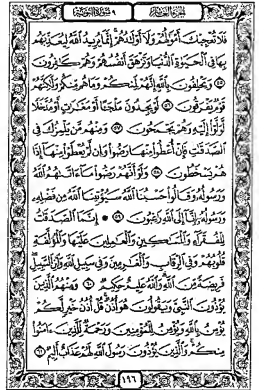 الجزء العاشر ٩ سورة التوبة
فَلَا تُعْجِبْكَ أَمْوَٰلُهُمْ وَلَآ أَوْلَٰدُهُمْ إِنَّمَا يُرِيدُ ٱللَّهُ لِيُعَذِّبَهُم
بِهَا فِى ٱلْحَيَوٰةِ ٱلدُّنْيَا وَتَزْهَقَ أَنفُسُهُمْ وَهُمْ كَٰفِرُونَ
٥٥ وَيَحْلِفُونَ بِٱللَّهِ إِنَّهُمْ لَمِنكُمْ وَمَا هُم مِّنكُمْ وَلَٰكِنَّهُمْ
قَوْمٌ يَفْرَقُونَ ٥٦ لَوْ يَجِدُونَ مَلْجَـًٔا أَوْ مَغَٰرَٰتٍ أَوْ مُدَّخَلًا
لَّوَلَّوْا۟ إِلَيْهِ وَهُمْ يَجْمَحُونَ ٥٧ وَمِنْهُم مَّن يَلْمِزُكَ فِى
ٱلصَّدَقَٰتِ فَإِنْ أُعْطُوا۟ مِنْهَا رَضُوا۟ وَإِن لَّمْ يُعْطَوْا۟ مِنْهَآ إِذَا
هُمْ يَسْخَطُونَ ٥٨ وَلَوْ أَنَّهُمْ رَضُوا۟ مَآ ءَاتَىٰهُمُ ٱللَّهُ
وَرَسُولُهُۥ وَقَالُوا۟ حَسْبُنَا ٱللَّهُ سَيُؤْتِينَا ٱللَّهُ مِن فَضْلِهِۦ
وَرَسُولُهُۥٓ إِنَّآ إِلَى ٱللَّهِ رَٰغِبُونَ ٥٩ إِنَّمَا ٱلصَّدَقَٰتُ
لِلْفُقَرَآءِ وَٱلْمَسَٰكِينِ وَٱلْعَٰمِلِينَ عَلَيْهَا وَٱلْمُؤَلَّفَةِ
قُلُوبُهُمْ وَفِى ٱلرِّقَابِ وَٱلْغَٰرِمِينَ وَفِى سَبِيلِ ٱللَّهِ وَٱبْنِ ٱلسَّبِيلِ
فَرِيضَةً مِّنَ ٱللَّهِ وَٱللَّهُ عَلِيمٌ حَكِيمٌ ٦٠ وَمِنْهُمُ ٱلَّذِينَ
يُؤْذُونَ ٱلنَّبِىَّ وَيَقُولُونَ هُوَ أُذُنٌ قُلْ أُذُنُ خَيْرٍ لَّكُمْ
يُؤْمِنُ بِٱللَّهِ وَيُؤْمِنُ لِلْمُؤْمِنِينَ وَرَحْمَةٌ لِّلَّذِينَ ءَامَنُوا۟
مِنكُمْ وَٱلَّذِينَ يُؤْذُونَ رَسُولَ ٱللَّهِ لَهُمْ عَذَابٌ أَلِيمٌ ٦١
١٩٦